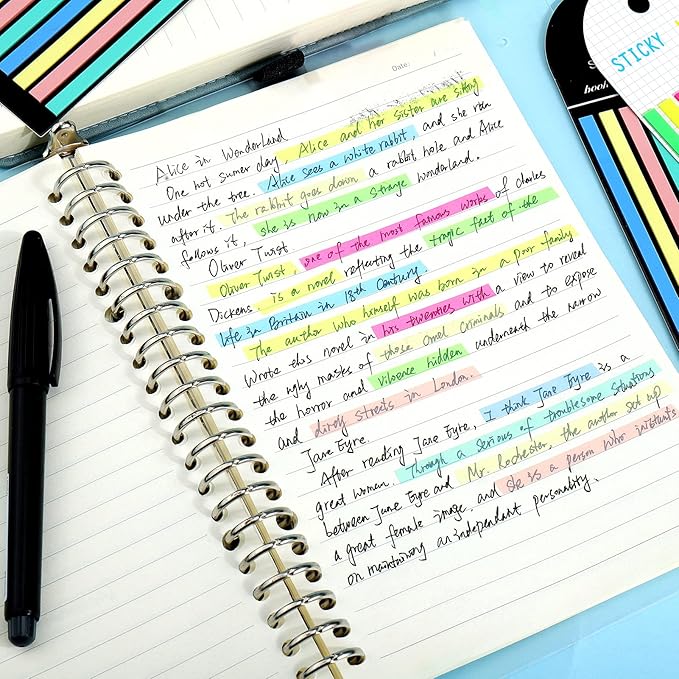 STICKY
book
Date:
Alice in Wonderland
One hot sumer day, Alice and her sister are sitting
under the tree. Alice sees a white rabbit, and she run
after it. The rabbit goes down a rabbit hole and Alice
follows it, she is now in a strage wonderland.
Oliver Twist
Oliver Twist, one of the most famous works of charles
Dickens. is a novel reflecting the tragic fact of the
life in Britain in 18th Century.
The author who himself was born in a poor family
Wrote this novel in his twenties with a view to reveal
the ugly masks of those criminals and to expose
the horror and viloence hidden underneath the narrow
and dirty streets in London.
Jane Eyre
After reading Jane Eyre, I think Jane Eyre is a
great woman. Through a serious of troublesome situations
between Jane Eyre and Mr. Rochester, the author set up
a great female image. and she is a person who insistants
on maintaining an independent personality.